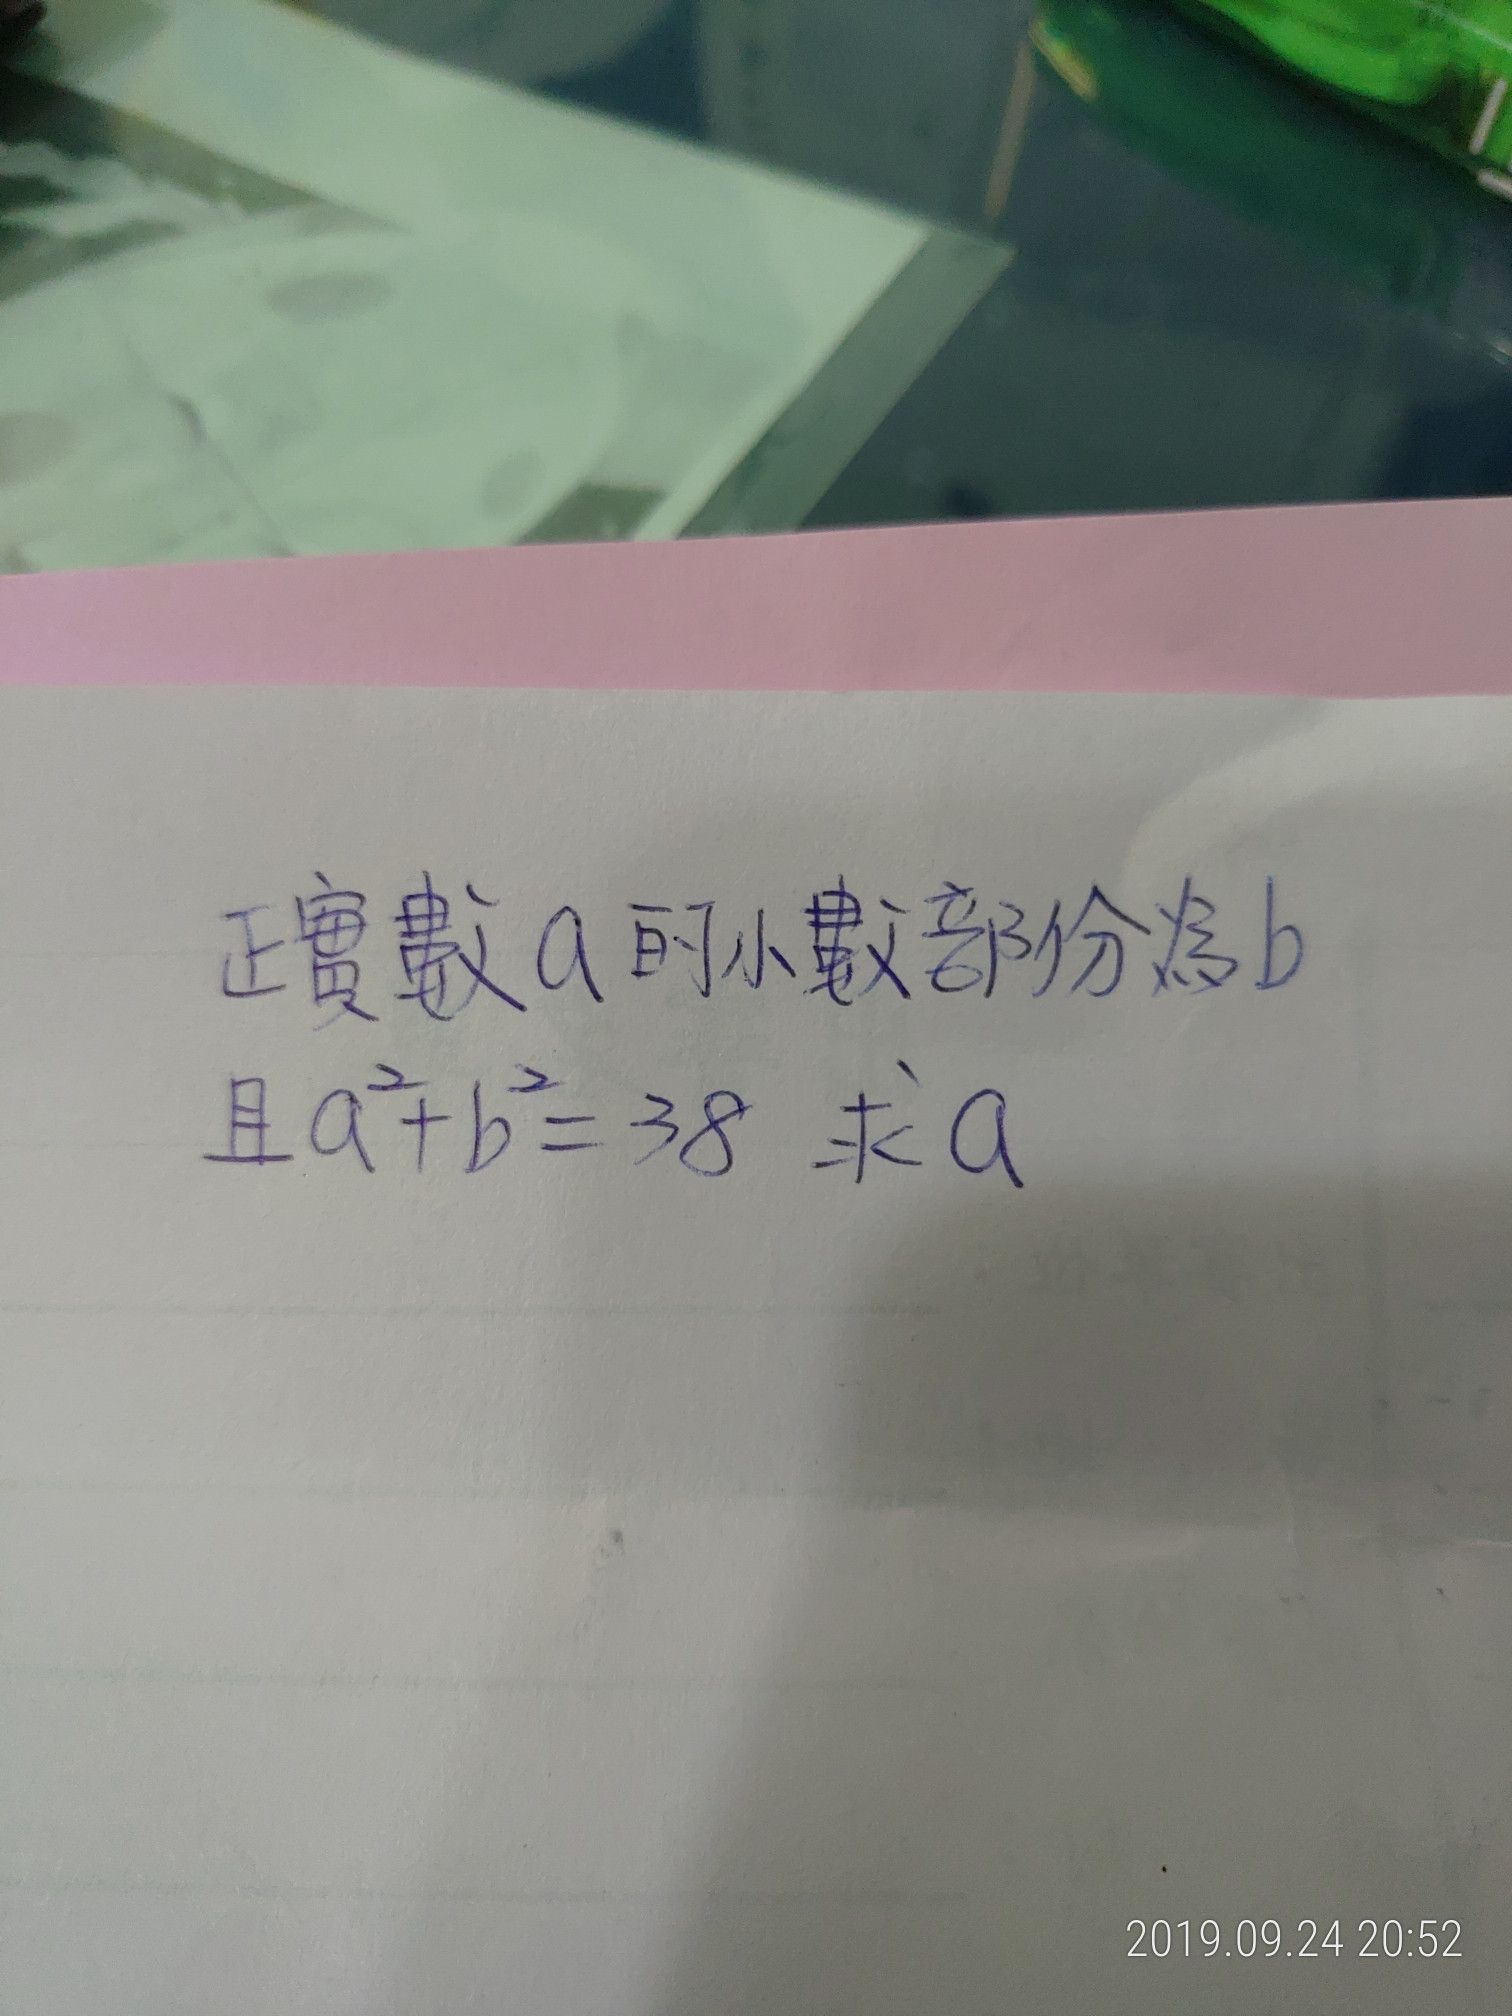 正實數a的小數部份為b
且a²+b²=38 求a
2019.09.24 20:52